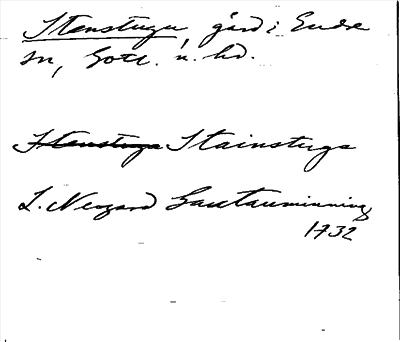 Stenstugu, gård i Endre
sn, Gotl. n. hd.
Stenstuga Stainstuga
L. Neogard Gautauminning
1732